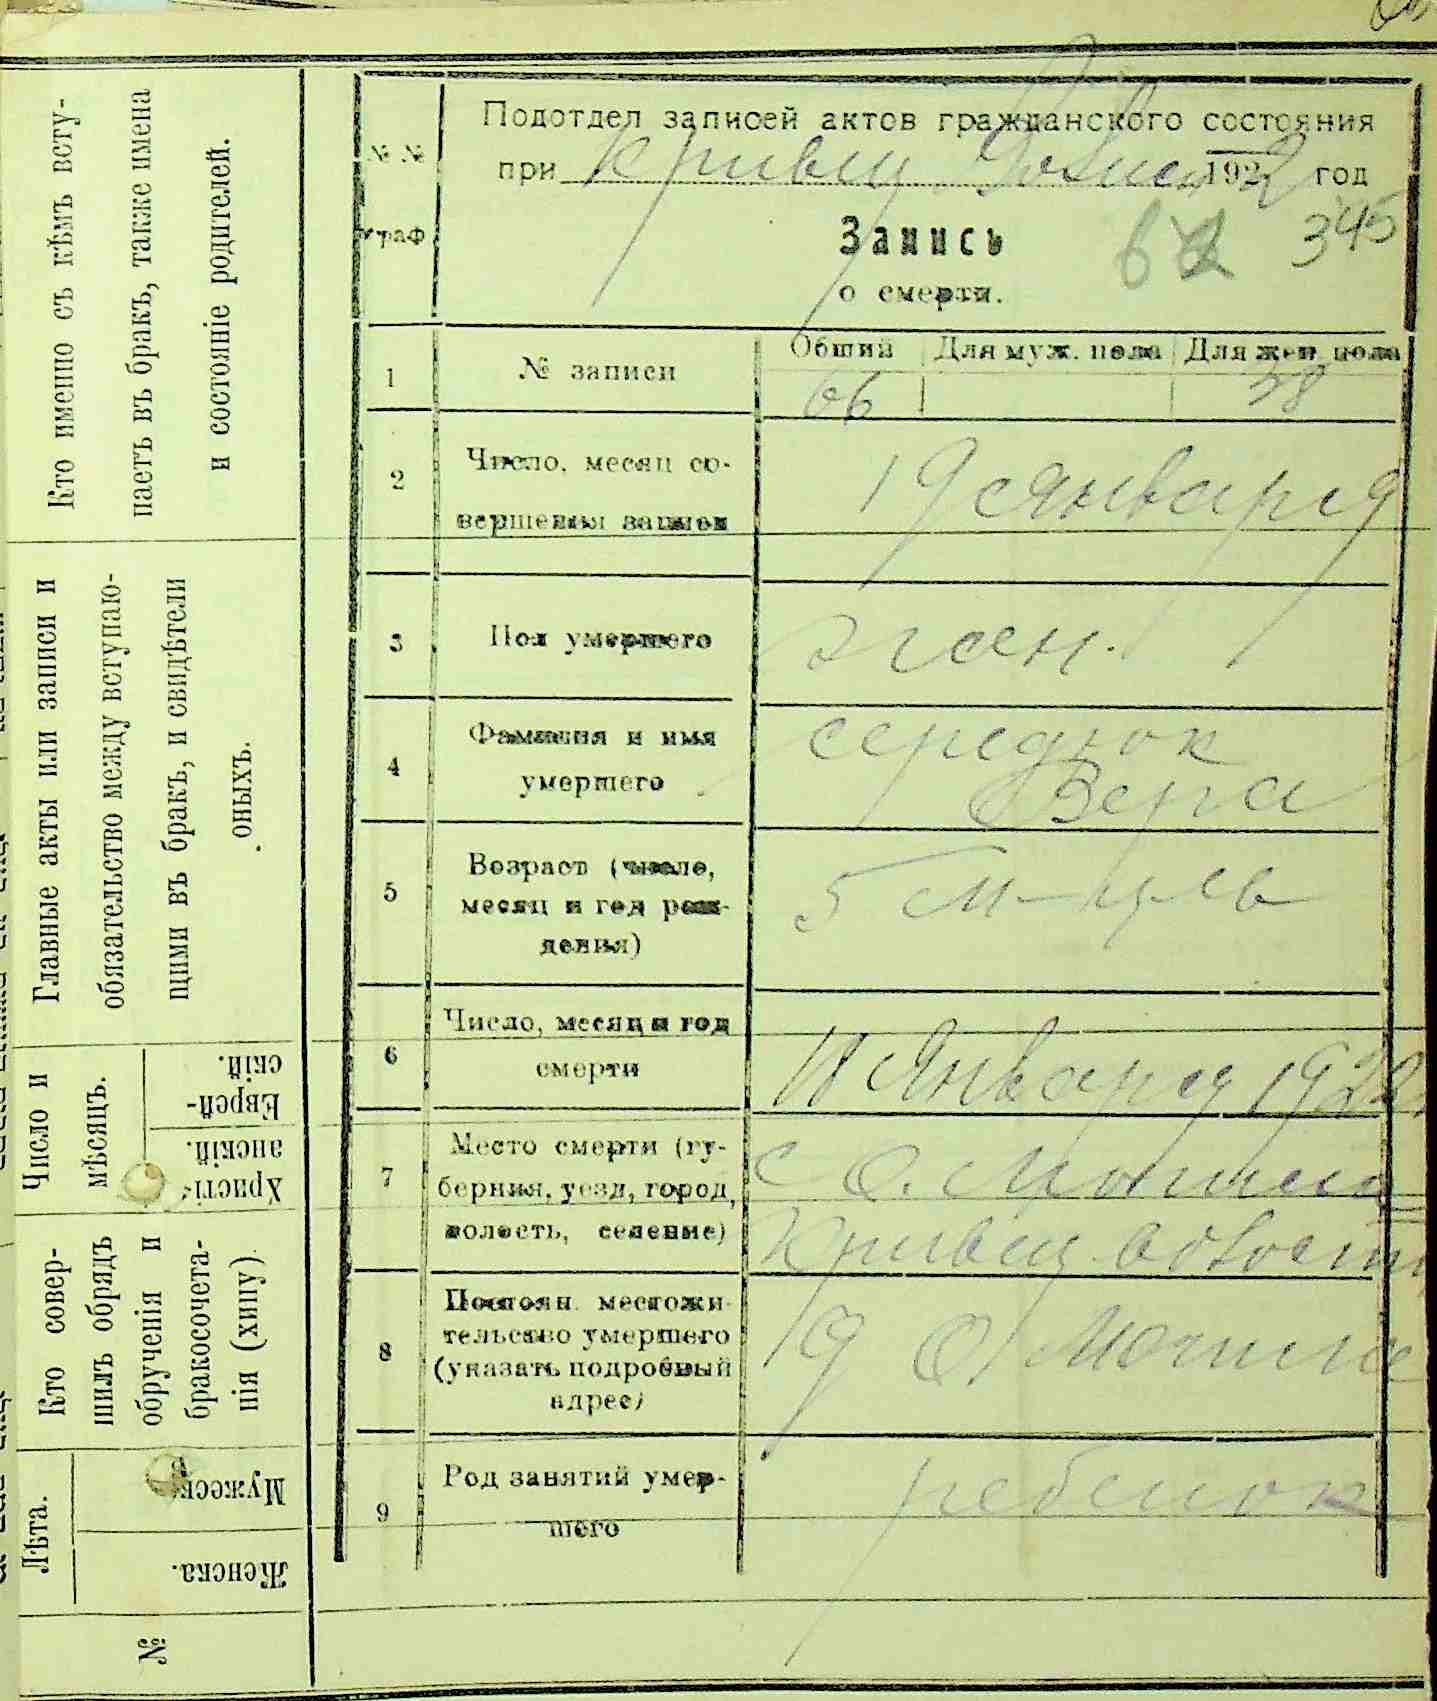 Кто именно съ кѣмъ всту-
паетъ въ бракъ, также имена
и состояніе родителей.
Главные акты или записи и
обязательство между вступаю-
щими въ бракъ, и свидѣтели
оныхъ.
Число и
мѣсяцъ.
Еврей-
скій.
Христі-
анскій.
Кто совер-
шилъ обрядъ
обрученія и
бракосочета-
нія (хипу)
Лѣта.
Мужеск.
Женска.
№
№ №
граф
Подотдел записей актов гражданского состояния
при Кривоу 1922 год
345
Запись
о смерти.
1
№ записи
Общий
Для муж. пола
Для жен. пола
66
38
2
Число, месяц со-
вершения записи
19 января
3
Пол умершего
жен.
4
Фамилия и имя
умершего
Середюк
Вера
5
Возраст (число,
месяц и год рож-
дения)
5 м-цев
6
Число, месяц и год
смерти
18 января 1922
7
Место смерти (гу-
берния, уезд, город,
волость, селение)
с О. Могила
Кривоу волости
8
Постоян. местожи-
тельство умершего
(указать подробный
адрес)
О. Могила
9
Род занятий умер-
шего
ребенок